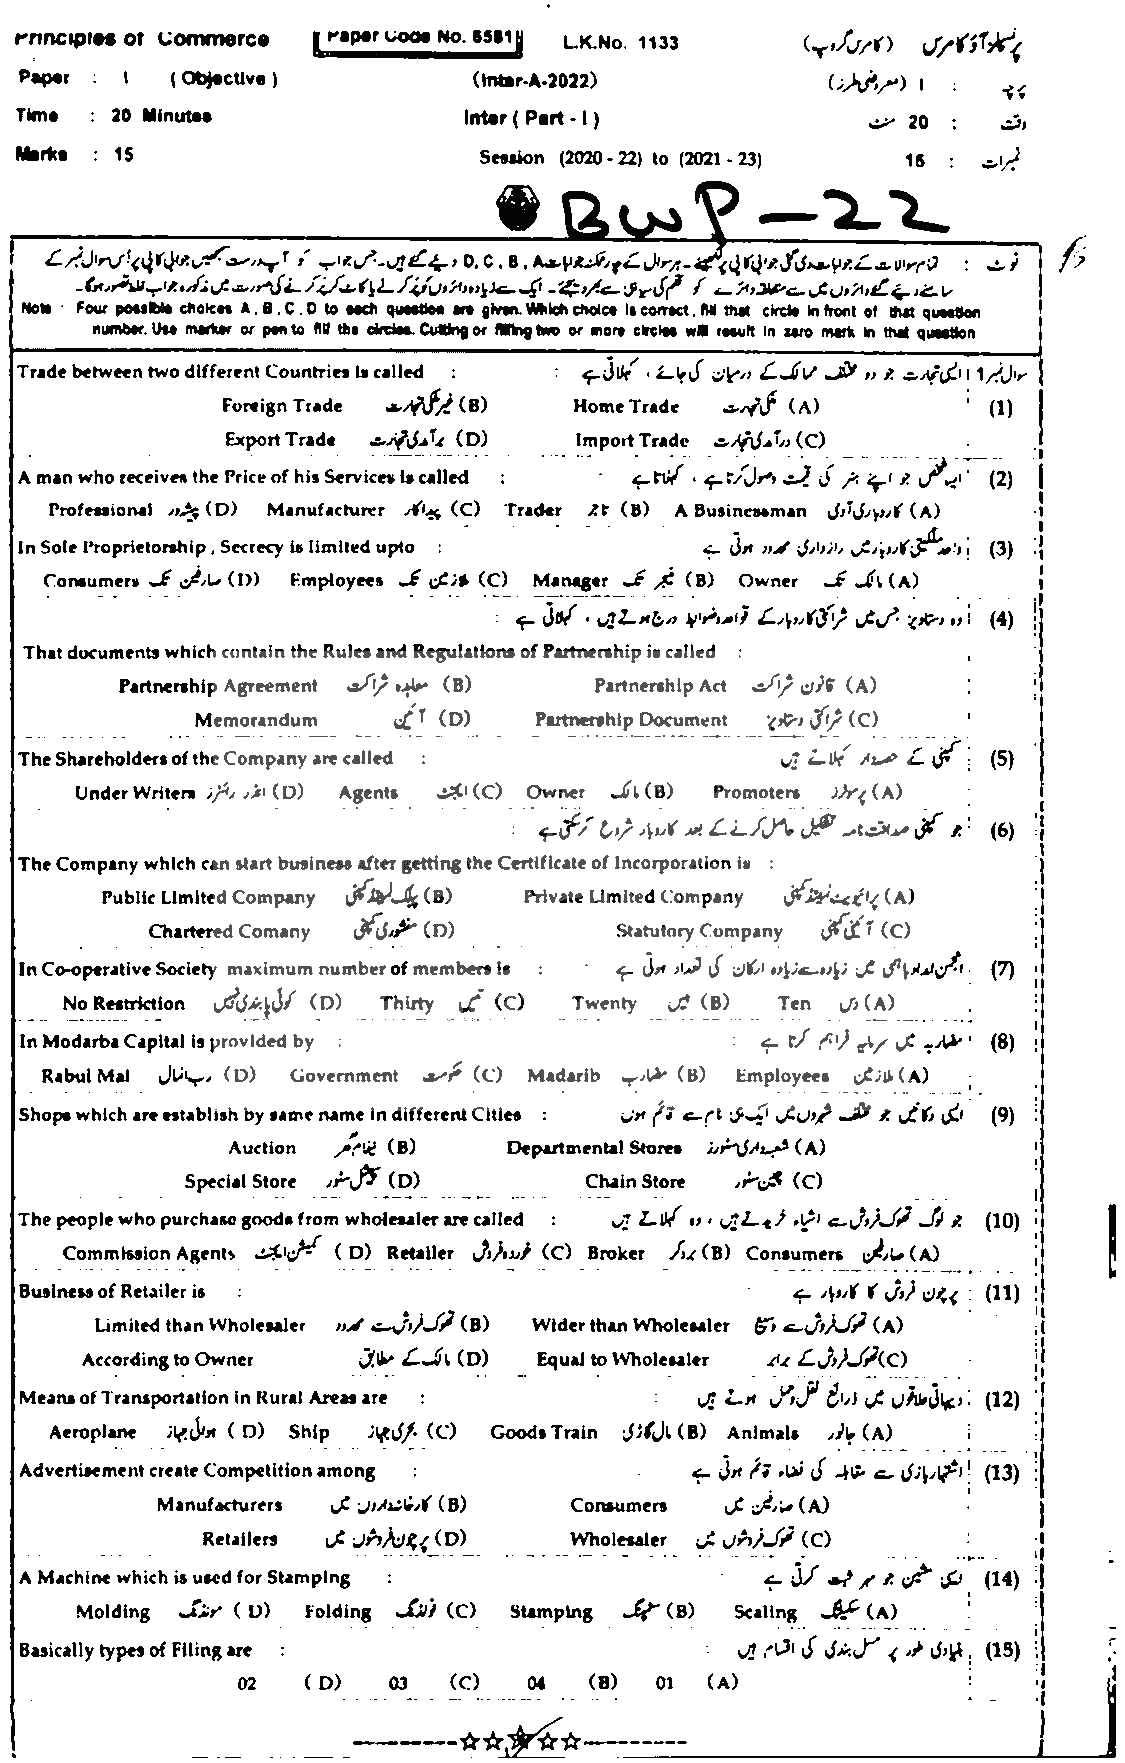 Principles of Commerce Paper Code No. 6581 L.K.No. 1133 پرنسپلز آف کامرس (کامرس گروپ)
Paper : I (Objective) (Inter-A-2022) پرچہ : I (معروضی طرز)
Time : 20 Minutes Inter (Part - I) وقت : 20 منٹ
Marks : 15 Session (2020 - 22) to (2021 - 23) نمبرات : 15
BWP-22
نوٹ : تمام سوالات کے جوابات دی گئی جوابی کاپی پر لکھیئے۔ ہر سوال کے چار ممکنہ جوابات D, C, B, A دیئے گئے ہیں۔ جس جواب کو آپ درست سمجھیں جوابی کاپی پر اُس سوال نمبر کے
سامنے دیئے گئے دائروں میں سے متعلقہ دائرے کو قلم کی سیاہی سے بھر دیجئے۔ ایک سے زیادہ دائروں کو پُر کرنے یا کاٹ کر پُر کرنے کی صورت میں مذکورہ جواب غلط تصور ہوگا۔
Note - Four possible choices A, B, C, D to each question are given. Which choice is correct, fill that circle in front of that question
number. Use marker or pen to fill the circles. Cutting or filling two or more circles will result in zero mark in that question
Trade between two different Countries is called : سوال نمبر 1 ایسی تجارت جو دو مختلف ممالک کے درمیان کی جائے ، کہلاتی ہے
Foreign Trade غیر ملکی تجارت (B) Home Trade ملکی تجارت (A) (1)
Export Trade برآمدی تجارت (D) Import Trade درآمدی تجارت (C)
A man who receives the Price of his Services is called : ایسا شخص جو اپنے ہنر کی قیمت وصول کرتا ہے ، کہلاتا ہے (2)
Professional پیشہ ور (D) Manufacturer پیداکار (C) Trader تاجر (B) A Businessman کاروباری آدمی (A)
In Sole Proprietorship, Secrecy is limited upto : واحد ملکیتی کاروبار میں رازداری محدود ہوتی ہے (3)
Consumers صارفین تک (D) Employees ملازمین تک (C) Manager منیجر تک (B) Owner مالک تک (A)
وہ دستاویز جس میں شراکتی کاروبار کے قواعد و ضوابط درج ہوتے ہیں ، کہلاتی ہے : (4)
That documents which contain the Rules and Regulations of Partnership is called :
Partnership Agreement معاہدہ شراکت (B) Partnership Act قانون شراکت (A)
Memorandum آئین (D) Partnership Document شراکتی دستاویز (C)
The Shareholders of the Company are called : کمپنی کے حصہ دار کہلاتے ہیں (5)
Under Writers انڈر رائٹرز (D) Agents ایجنٹ (C) Owner مالک (B) Promoters پروموٹرز (A)
جو کمپنی صداقت نامہ تشکیل حاصل کرنے کے بعد کاروبار شروع کر سکتی ہے : (6)
The Company which can start business after getting the Certificate of Incorporation is :
Public Limited Company پبلک لمیٹڈ کمپنی (B) Private Limited Company پرائیویٹ لمیٹڈ کمپنی (A)
Chartered Comany منشوری کمپنی (D) Statutory Company آئینی کمپنی (C)
In Co-operative Society maximum number of members is : انجمن امداد باہمی میں زیادہ سے زیادہ ارکان کی تعداد ہوتی ہے (7)
No Restriction کوئی پابندی نہیں (D) Thirty تیس (C) Twenty بیس (B) Ten دس (A)
In Modarba Capital is provided by : مضاربہ میں سرمایہ فراہم کرتا ہے : (8)
Rabul Mal رب المال (D) Government حکومت (C) Madarib مضارب (B) Employees ملازمین (A)
Shops which are establish by same name in different Cities : ایسی دکانیں جو مختلف شہروں میں ایک ہی نام سے قائم ہوں (9)
Auction نیلام گھر (B) Departmental Stores شعبہ داری سٹورز (A)
Special Store سپیشل سٹور (D) Chain Store چین سٹور (C)
The people who purchase goods from wholesaler are called : جو لوگ تھوک فروش سے اشیاء خریدتے ہیں ، وہ کہلاتے ہیں (10)
Commission Agents کمیشن ایجنٹ (D) Retailer خوردہ فروش (C) Broker بروکر (B) Consumers صارفین (A)
Business of Retailer is : پرچون فروش کا کاروبار ہے : (11)
Limited than Wholesaler تھوک فروش سے محدود (B) Wider than Wholesaler تھوک فروش سے وسیع (A)
According to Owner مالک کے مطابق (D) Equal to Wholesaler تھوک فروش کے برابر (C)
Means of Transportation in Rural Areas are : دیہاتی علاقوں میں ذرائع نقل و حمل ہوتے ہیں : (12)
Aeroplane ہوائی جہاز (D) Ship بحری جہاز (C) Goods Train مال گاڑی (B) Animals جانور (A)
Advertisement create Competition among : اشتہار بازی سے مقابلہ کی فضاء قائم ہوتی ہے (13)
Manufacturers کارخانہ داروں میں (B) Consumers صارفین میں (A)
Retailers پرچون فروشوں میں (D) Wholesaler تھوک فروشوں میں (C)
A Machine which is used for Stamping : ایسی مشین جو مہر ثبت کرتی ہے (14)
Molding مولڈنگ (D) Folding فولڈنگ (C) Stamping سٹیمپنگ (B) Scaling سکیلنگ (A)
Basically types of Filing are : بنیادی طور پر مسل بندی کی اقسام ہیں : (15)
02 (D) 03 (C) 04 (B) 01 (A)